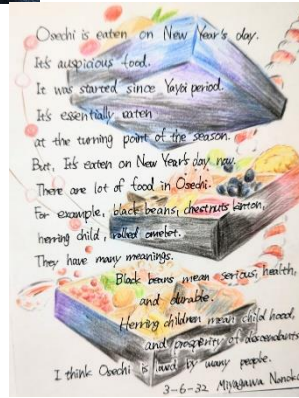 Osechi is eaten on New Year's day.
It's auspicious food.
It was started since Yayoi period.
It's essentially eaten
at the turning point of the season.
But, It's eaten on New Year's day now.
There are lot of food in Osechi.
For example, black beans, chestnuts kinton,
herring child, rolled omelet.
They have many meanings.
Black beans mean serious, health,
and durable.
Herring children mean child hood,
and prosperity of
I think Osechi is loved by many people.
3-6-32 Miyagawa Nonoka